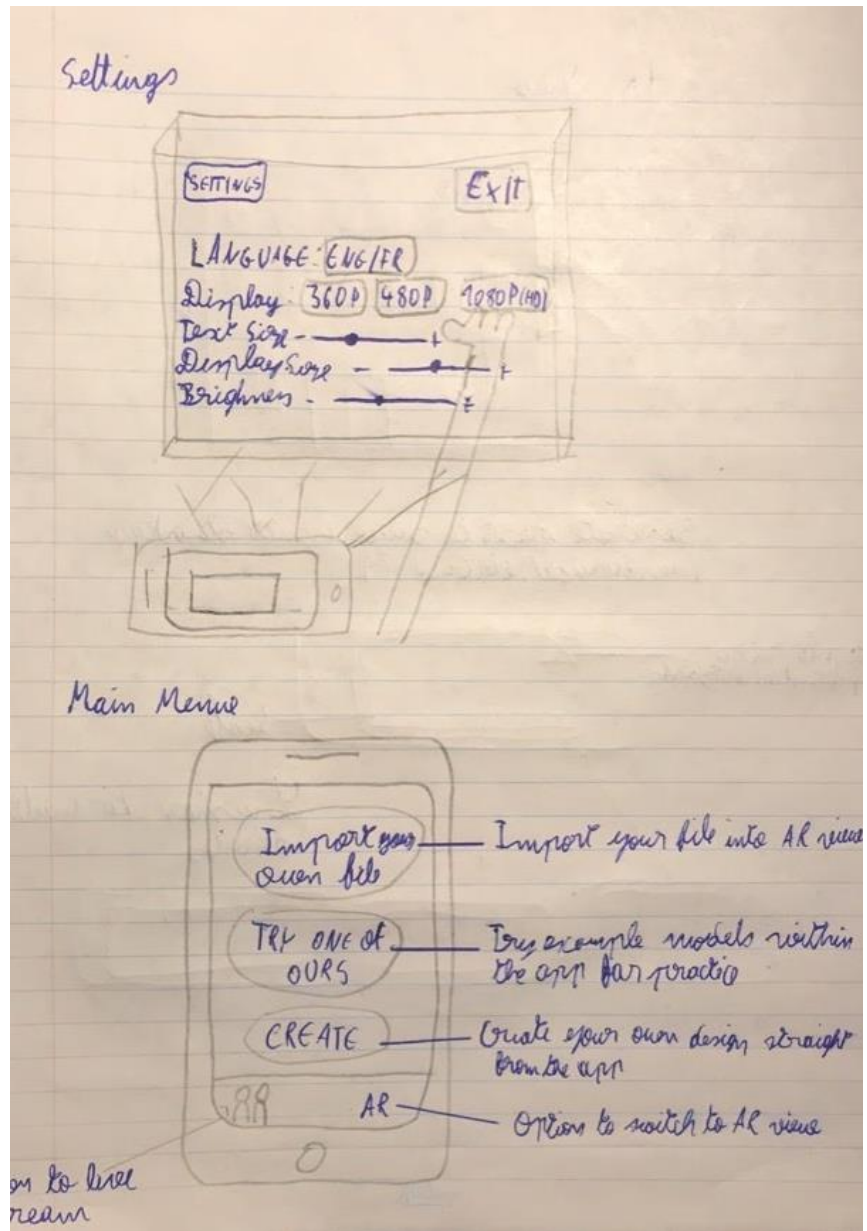 Settings
SETTINGS
Exit
LANGUAGE: ENG/FR
Display: 360P 480P 1080P(HD)
Text Size - +
Display Size - +
Brighnes - +
Main Menue
Import your
own file
Import your file into AR view
TRY ONE OF
OURS
Try example models within
the app for practice
CREATE
Create your own design straight
from the app
AR
Option to switch to AR view
on to live
ream